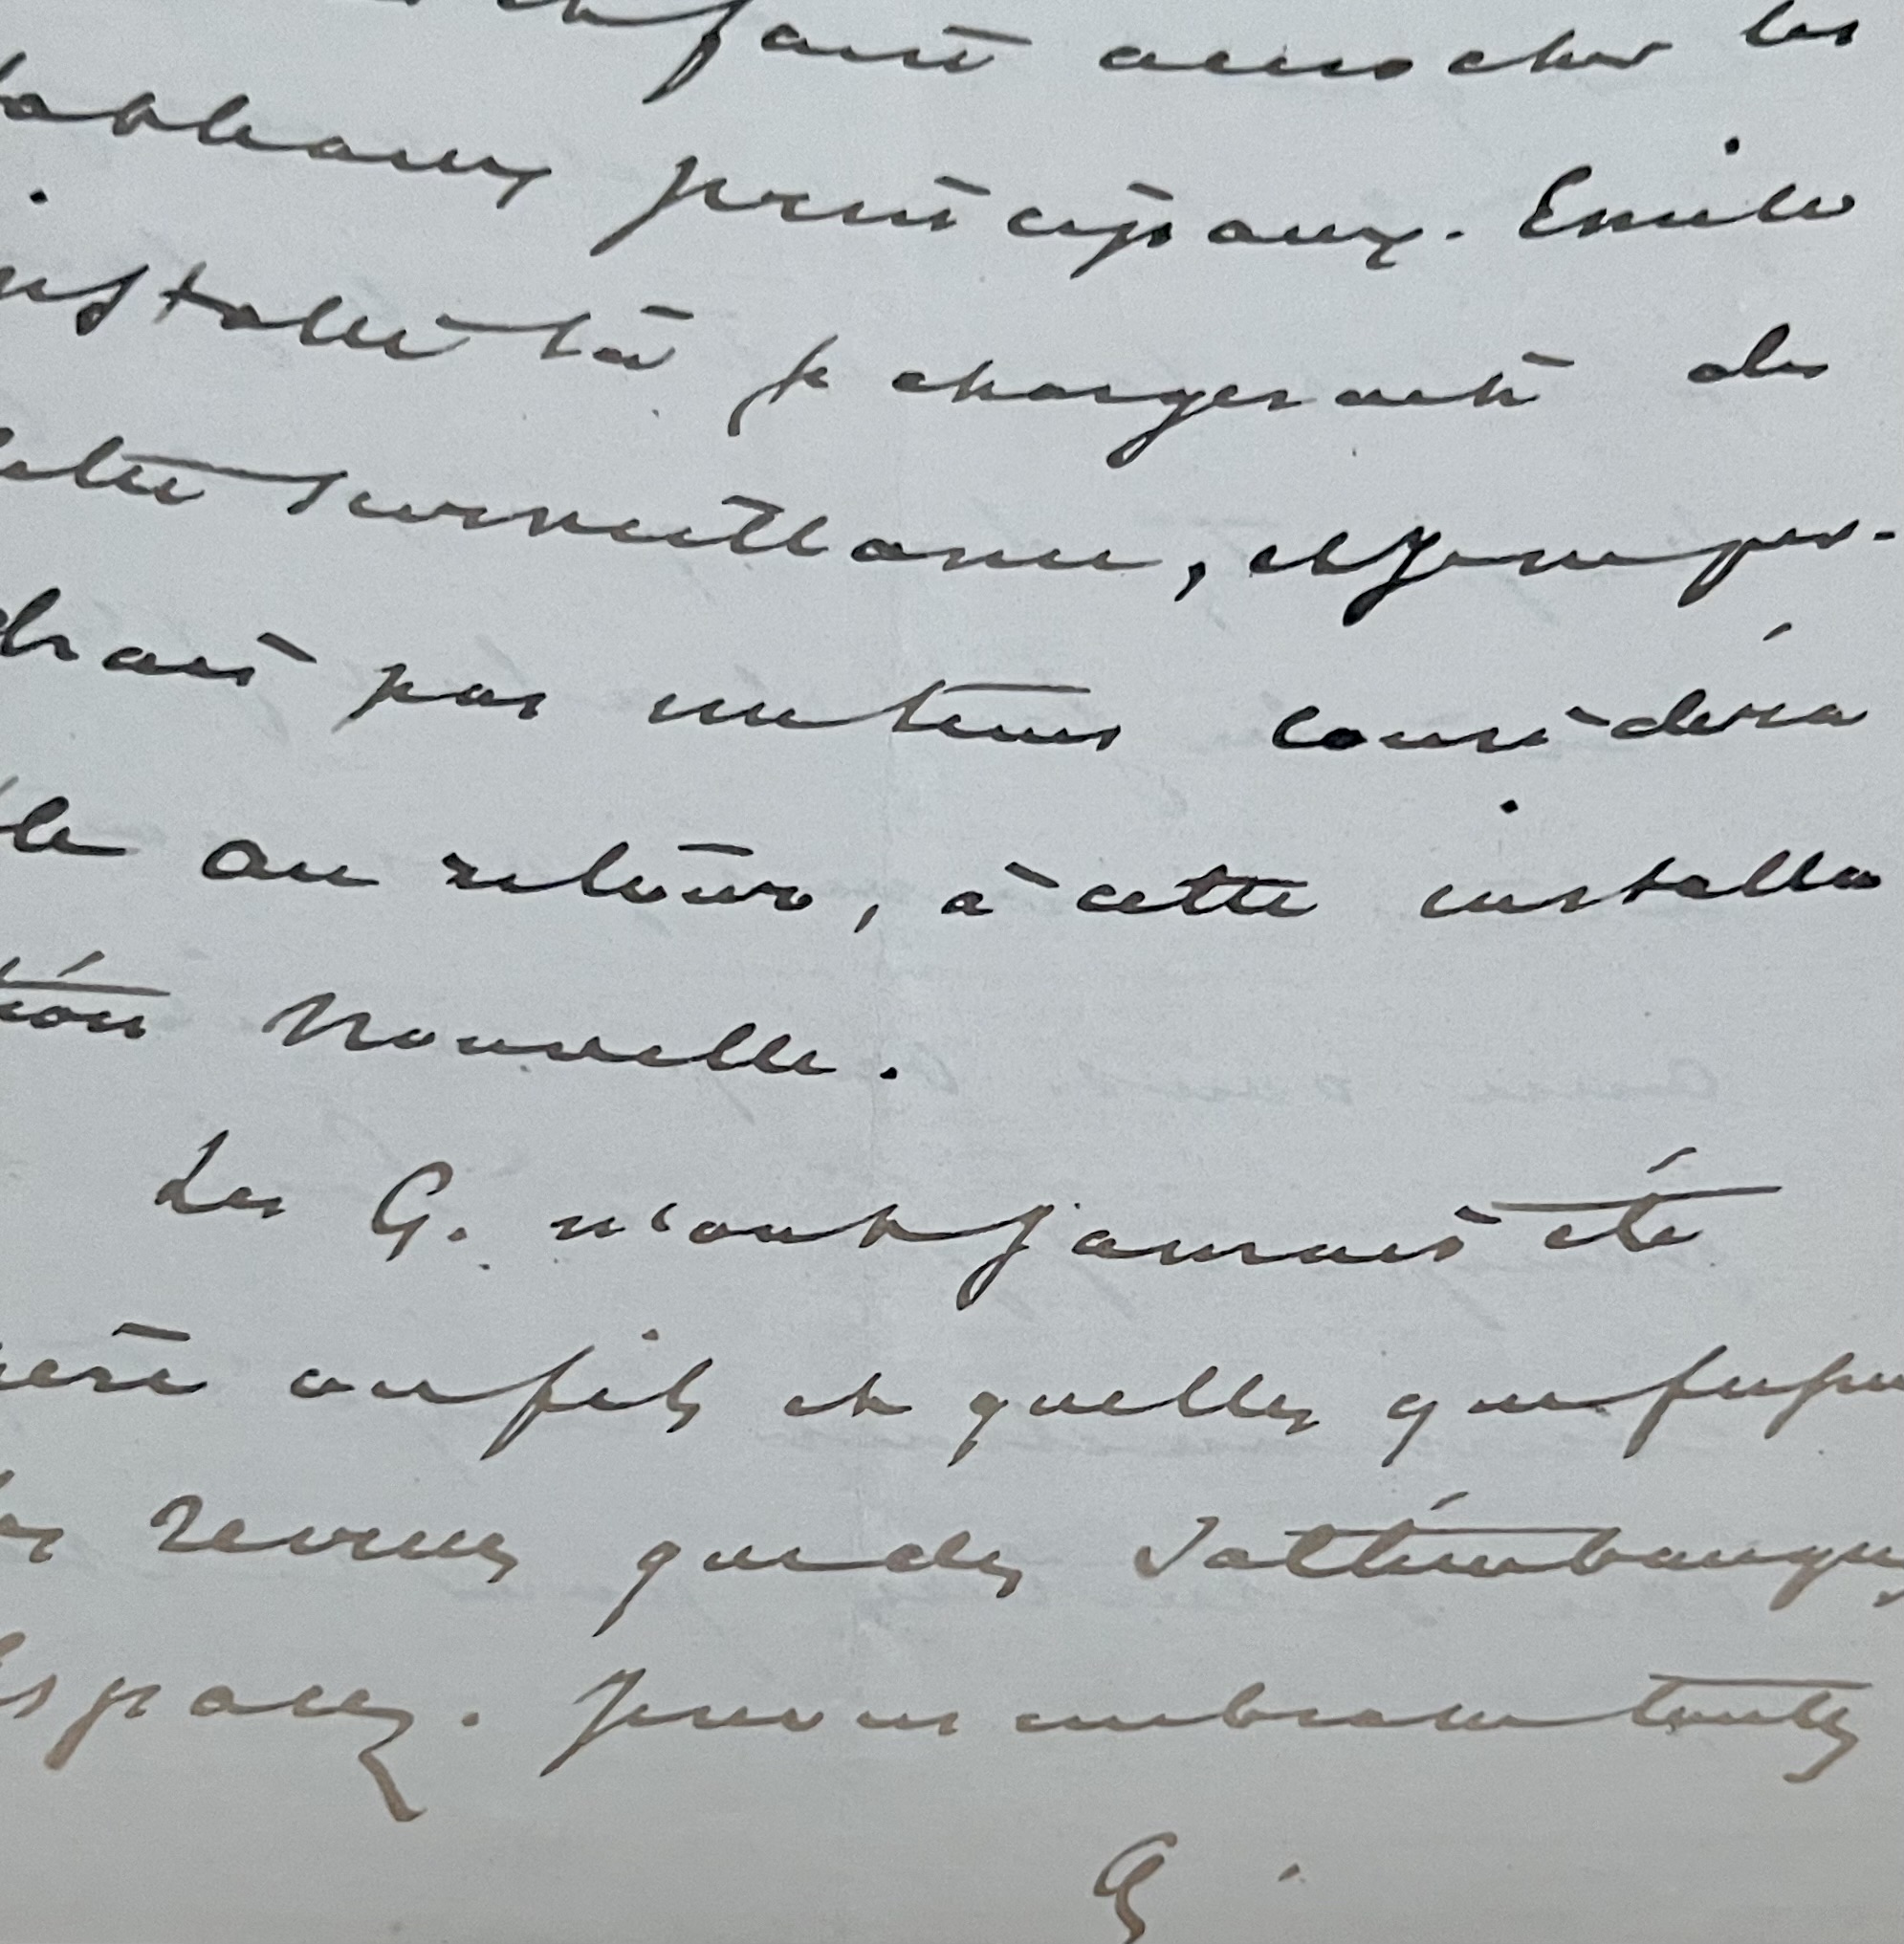 faire accrocher les
tableaux principaux. Emile
installé là se chargerait de
cette surveillance, et je ne per-
drais pas un tems considéra
ble au retour, à cette installa
tion nouvelle.
Les G. n'ont jamais été
père ou fils et quelles que fussent
les revues que des Saltimbanques
. Je vous embrasse toutes
G